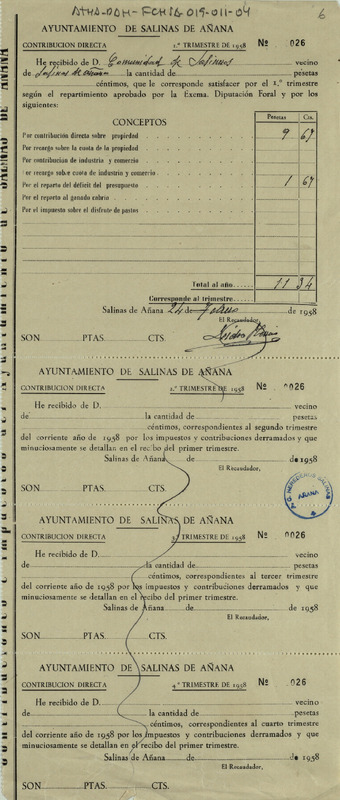 ATHA-DAH-FCHSA-019-011-04
6
AYUNTAMIENTO DE SALINAS DE AÑANA
CONTRIBUCIÓN DIRECTA 1.º TRIMESTRE DE 1958 Nº 026
He recibido de D. Comunidad de Salinas vecino
de Salinas de Añana la cantidad de pesetas
céntimos, que le corresponde satisfacer por el 1.º trimestre
según el repartimiento aprobado por la Excma. Diputación Foral y por los
siguientes:
CONCEPTOS Pesetas Cts.
Por contribución directa sobre propiedad 9 67
Por recargo sobre la cuota de la propiedad
Por contribución de industria y comercio
Por recargo sobre cuota de industria y comercio
Por el reparto del déficit del presupuesto 1 67
Por el reparto al ganado cabrío
Por el impuesto sobre el disfrute de pastos
Total al año 11 34
Corresponde al trimestre
Salinas de Añana 24 de Febrero de 1958
El Recaudador,
SON PTAS. CTS.
AYUNTAMIENTO DE SALINAS DE AÑANA
CONTRIBUCIÓN DIRECTA 2.º TRIMESTRE DE 1958 Nº 026
He recibido de D. vecino
de la cantidad de pesetas
céntimos, correspondientes al segundo trimestre
del corriente año de 1958 por los impuestos y contribuciones derramados y que
minuciosamente se detallan en el recibo del primer trimestre.
Salinas de Añana de de 1958
El Recaudador,
SON PTAS. CTS.
G. HEREDEROS SALINAS
AÑANA
AYUNTAMIENTO DE SALINAS DE AÑANA
CONTRIBUCIÓN DIRECTA 3.º TRIMESTRE DE 1958 Nº 026
He recibido de D. vecino
de la cantidad de pesetas
céntimos, correspondientes al tercer trimestre
del corriente año de 1958 por los impuestos y contribuciones derramados y que
minuciosamente se detallan en el recibo del primer trimestre.
Salinas de Añana de de 1958
El Recaudador,
SON PTAS. CTS.
AYUNTAMIENTO DE SALINAS DE AÑANA
CONTRIBUCIÓN DIRECTA 4.º TRIMESTRE DE 1958 Nº 026
He recibido de D. vecino
de la cantidad de pesetas
céntimos, correspondientes al cuarto trimestre
del corriente año de 1958 por los impuestos y contribuciones derramados y que
minuciosamente se detallan en el recibo del primer trimestre.
Salinas de Añana de de 1958
El Recaudador,
SON PTAS. CTS.